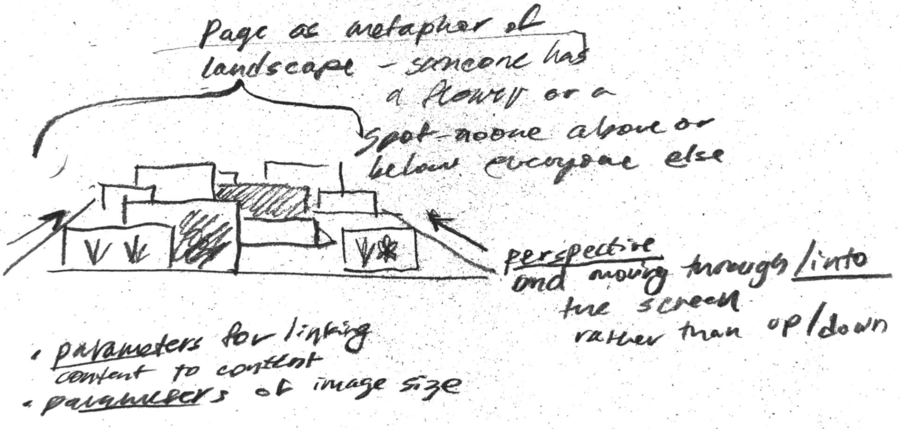 page as metaphor of
landscape - someone has
a flower or a
spot - noone above or
below everyone else
perspective
and moving through/into
the screen
rather than up/down
• parameters for linking
content to content
• parameters of image size